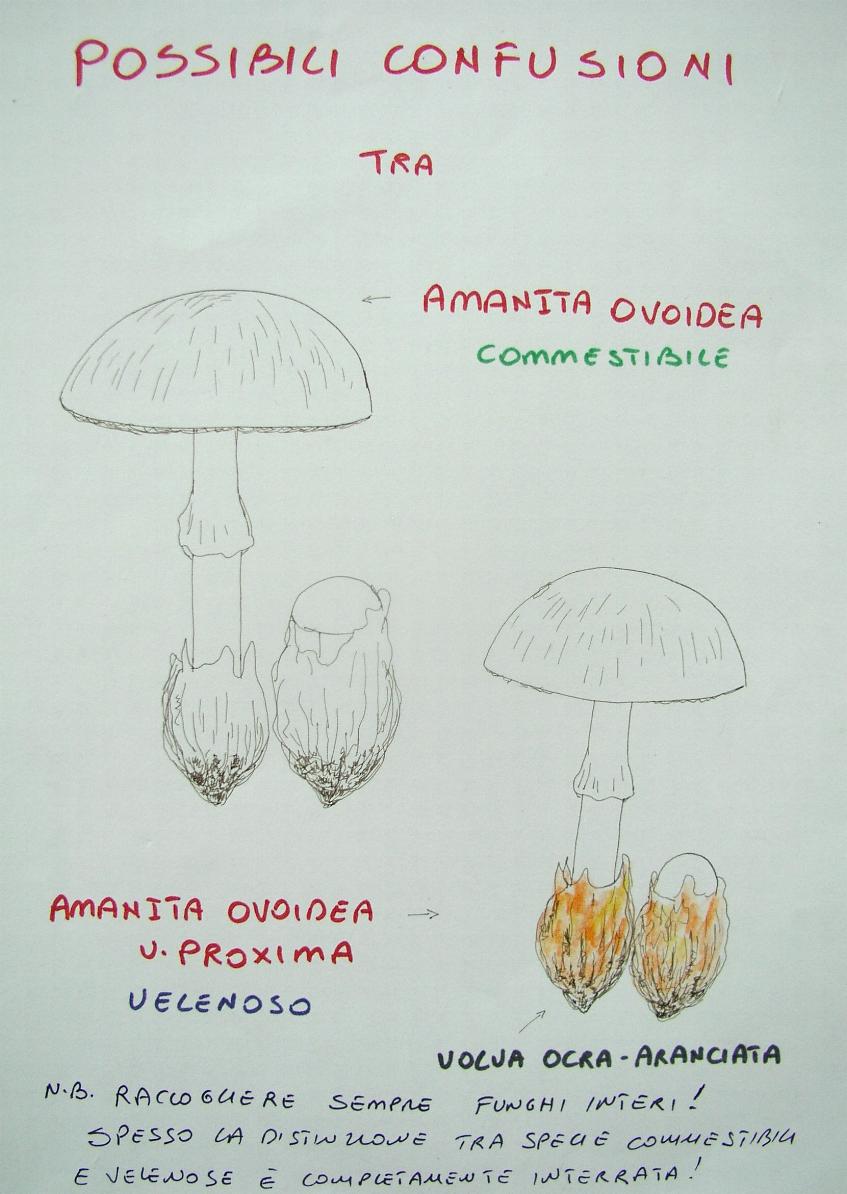 POSSIBILI CONFUSIONI
TRA
AMANITA OVOIDEA
COMMESTIBILE
AMANITA OVOIDEA
V. PROXIMA
VELENOSO
VOLVA OCRA-ARANCIATA
N.B. RACCOGLIERE SEMPRE FUNGHI INTERI!
SPESSO LA DISTINZIONE TRA SPECIE COMMESTIBILI
E VELENOSE È COMPLETAMENTE INTERRATA!